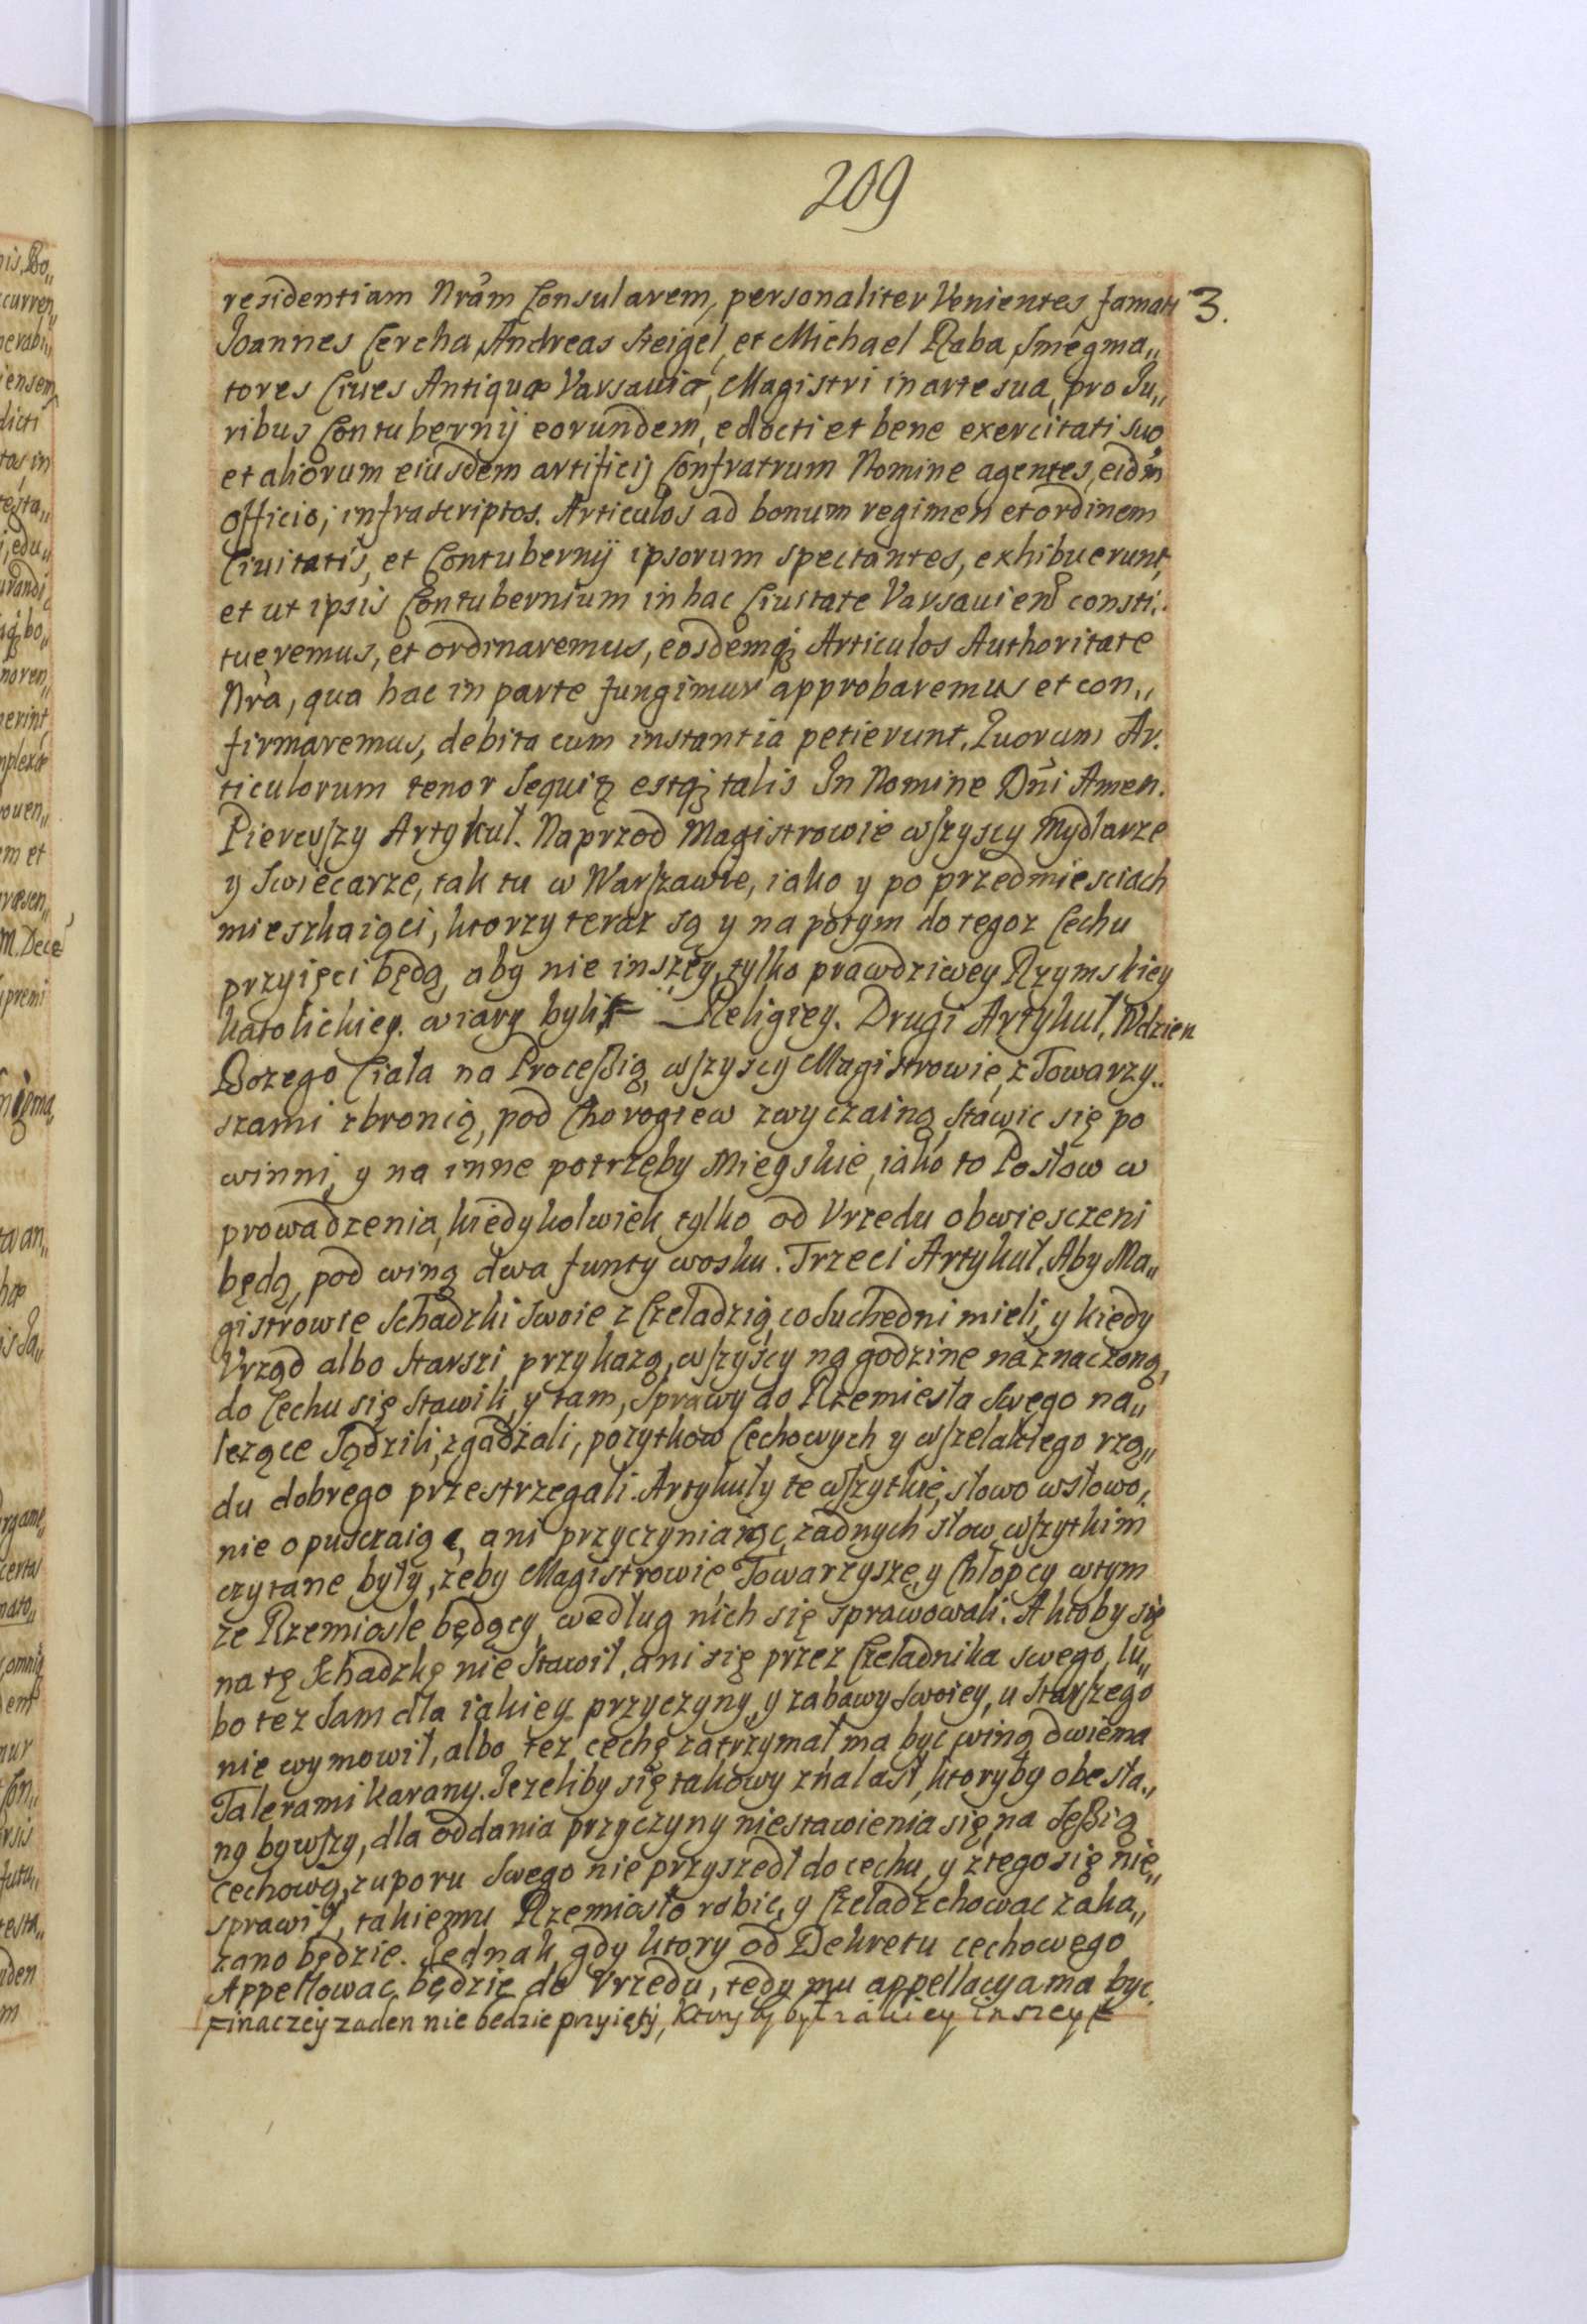 209
3.
residentiam Nram Consularem, personaliter Venientes famati
Joannes Cercha, Andreas Steigel, et Michael Raba, Smegma„
tores Ciues Antiquæ Varsauiæ, Magistri in arte sua, pro Ju„
ribus Contubernij eorundem, edocti et bene exercitati suo
et aliorum eiusdem artificij Confratrum Nomine agentes, eidm
Officio, infrascriptos. Articulos ad bonum regimen et ordinem
Ciuitatis, et Contubernij ipsorum spectantes, exhibuerunt,
et ut ipsis Contubernium in hac Ciuitate Varsauien consti„
tueremus, et ordinaremus, eosdemq; Articulos Authoritate
Nra, qua hac in parte fungimur approbaremus et con„
firmaremus, debita cum instantia petierunt. Quorum Ar.
ticulorum tenor Sequit estq; talis In Nomine Dni Amen.
Pierwszy Artykuł. Naprzod Magistrowie wszyscy Mydlarze
y Swiecarze, tak tu w Warszawie, iako y po przedmiesciach
mieszkaiąci, ktorzy teraz są y na potym do tegoz Cechu
przyięci będą, aby nie inszey, tylko prawdziwey Rzymskiey
katolickiey. wiary byli Religiey. Drugi Artykuł, Wdzien
Bozego Ciała na Processią, wszyscy Magistrowie, z Towarzy„
szami zbronią, pod Chorogiew zwyczainą, stawic się po
winni, y na inne potrzęby Mieyskie, iako to Posłow w
prowadzenia, kiedykolwiek tylko od Vrzedu obwiesczeni
będą, pod winą dwa funty wosku. Trzeci Artykuł, Aby Ma„
gistrowie Schadzki swoie z Czeladzią co Suchedni mieli, y kiedy
Vrząd albo Starszi przykazą, wszyscy na godzine naznaczoną,
do Cechu się stawili, y tam, Sprawy do Rzemiesła Swego na„
lezące Sądzili, zgadzali, pozytkow Cechowych y wszelakiego rzą„
du dobrego przestrzegali. Artykuły te wszytkie, słowo wsłowo,
nie opusczaiąc, ani przyczyniaiąc, zadnych słow, wszytkim
czytane były, zeby Magistrowie Towarzysze, y Chłopcy wtym
ze Rzemiosle będący, według nich się sprawowali. A ktoby się
na tę Schadzkę nie stawił, ani się przez Czeladnika swego, lu„
bo tez Sam dla iakiey przyczyny, y zabawy Swoiey, u Starszego
nie wymowił, albo tez cechę zatrzymał, ma byc winą dwiema
Talerami karany. Jezeliby się takowy znalasł, ktoryby obesła„
ny bywszy, dla oddania przyczyny niestawienia się, na Sessią
cechową, z uporu Swego nie przyszedł do cechu, y z tego się nie„
sprawił, takiemu Rzemiosło robic, y Czeladz chowac zaka„
zano będzie. Jednak gdy ktory od Dekretu cechowego
Appellowac będzie do Vrzedu, tedy mu appellacya ma byc
inaczey zaden nie bedzie przyięty, Ktory by był iakiey inszey